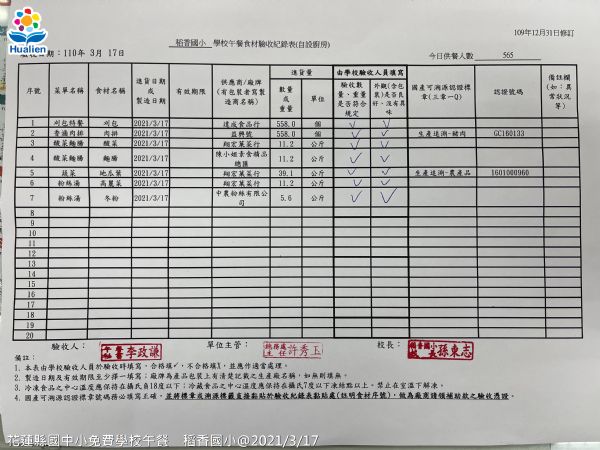 Hualien
109年12月31日修訂
稻香國小 學校午餐食材驗收紀錄表(自設廚房)
驗收日期：110年 3月 17日 今日供餐人數 565
序號 菜單名稱 食材名稱 進貨日期或製造日期 有效期限 供應商/廠牌(有包裝者寫製造商名稱) 進貨量 數量或重量 單位 由學校驗收人員填寫 驗收數量、重量是否符合規定 外觀(含包裝)是否良好、沒有異味 國產可溯源認證標章(三章一Q) 認證號碼 備註欄(如：異常狀況等)
1 刈包特餐 刈包 2021/3/17 達成食品行 558.0 個 ✓ ✓
2 香滷肉排 肉排 2021/3/17 益興號 558.0 個 ✓ ✓ 生產追溯-豬肉 GC160133
3 酸菜麵腸 酸菜 2021/3/17 翔宏蔬菜行 11.2 公斤 ✓ ✓
4 酸菜麵腸 麵腸 2021/3/17 陳小姐素食精品總匯 11.2 公斤 ✓ ✓
5 蔬菜 地瓜葉 2021/3/17 翔宏蔬菜行 39.1 公斤 ✓ ✓ 生產追溯-農產品 1601000960
6 粉絲湯 高麗菜 2021/3/17 翔宏蔬菜行 11.2 公斤 ✓ ✓
7 粉絲湯 冬粉 2021/3/17 中農粉絲有限公司 5.6 公斤 ✓ ✓
8
9
10
11
12
13
14
15
16
17
18
19
20
驗收人： 李政謙 單位主管： 總務處主任 許秀玉 校長： 稻香國小校長 孫東志
備註：
1. 本表由學校驗收人員於驗收時填寫，合格填✓，不合格填X，並應作適當處理。
2. 製造日期及有效期限至少擇一填寫；廠牌為產品包裝上有清楚記載之生產廠名稱，如無則填無。
3. 冷凍食品之中心溫度應保持在攝氏負18度以下；冷藏食品之中心溫度應保持在攝氏7度以下凍結點以上。禁止在室溫下解凍。
4. 國產可溯源認證標章號碼務必填寫正確，並將標章或溯源標籤直接黏貼於驗收紀錄表黏貼處(註明食材序號)，做為廠商請領補助款之驗收憑證。
花蓮縣國中小免費學校午餐 稻香國小@2021/3/17